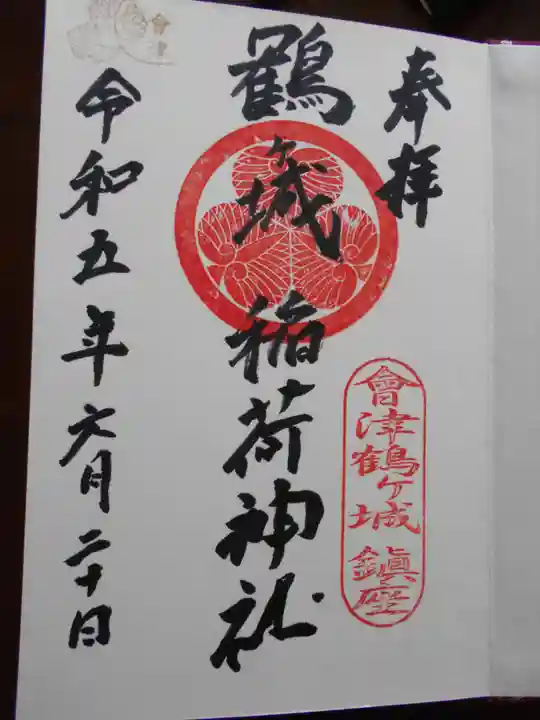 奉拝
會津鶴ヶ城 鎮座
鶴ヶ城稲荷神社
令和五年六月二十日
會